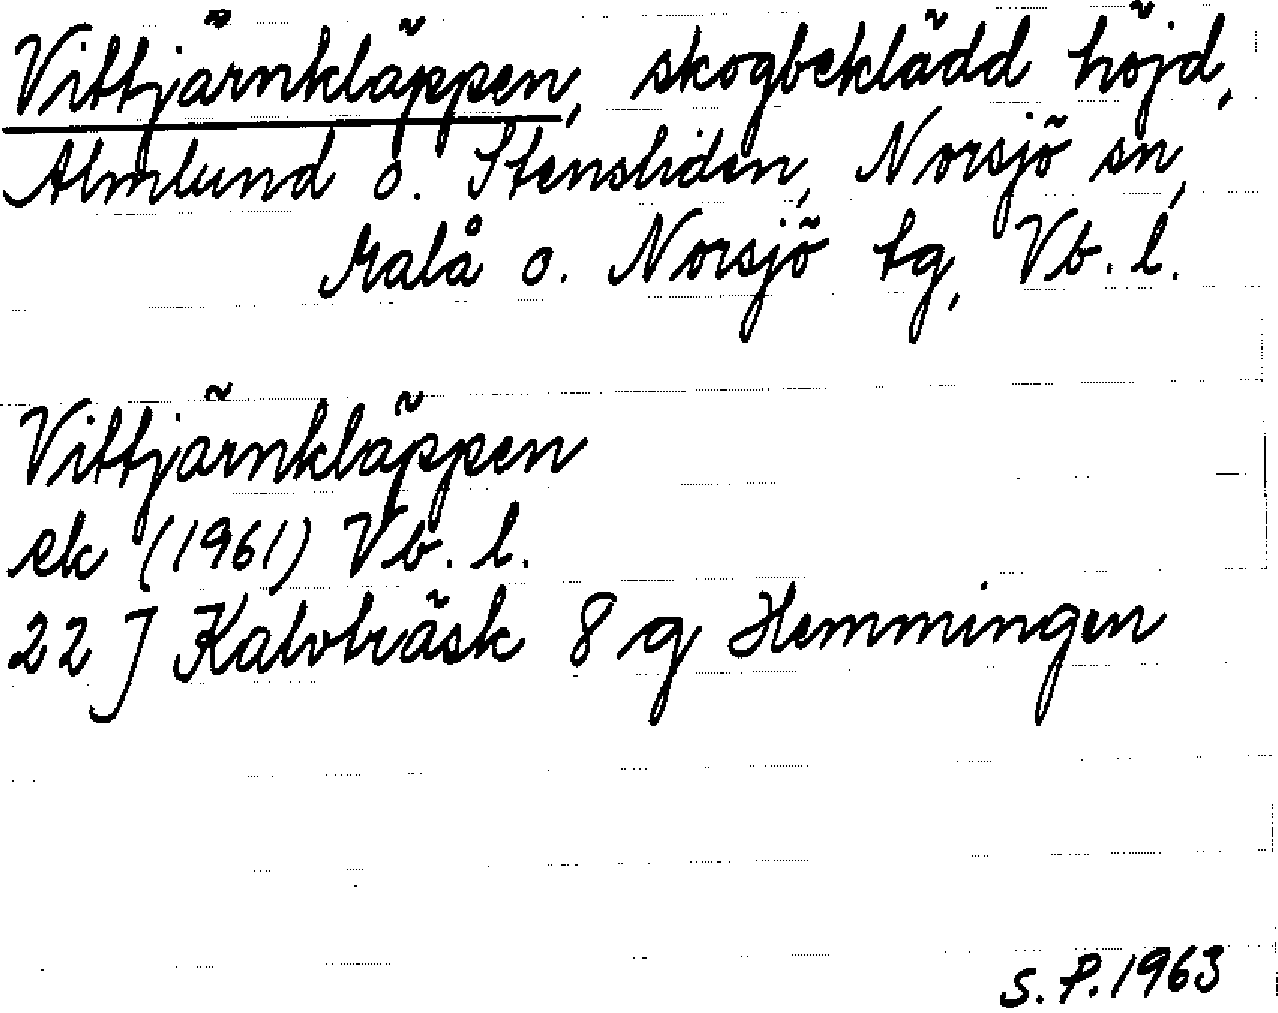 Vittjärnkläppen, skogbeklädd höjd,
Almlund o. Stensliden, Norsjö sn,
Malå o. Norsjö tg, Vb. l.
Vittjärnkläppen
ek (1961) Vb. l.
22 J Kalvträsk 8 g Hemmingen
S. P. 1963